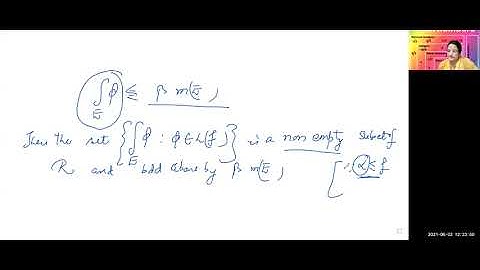 ∫_E φ ≤ β m(E)
Then the set { ∫_E φ : φ ∈ L(f) } is a non empty subset of
R and bdd above by β m(E) [∵ α ≤ f
2021-06-02 12:23:50